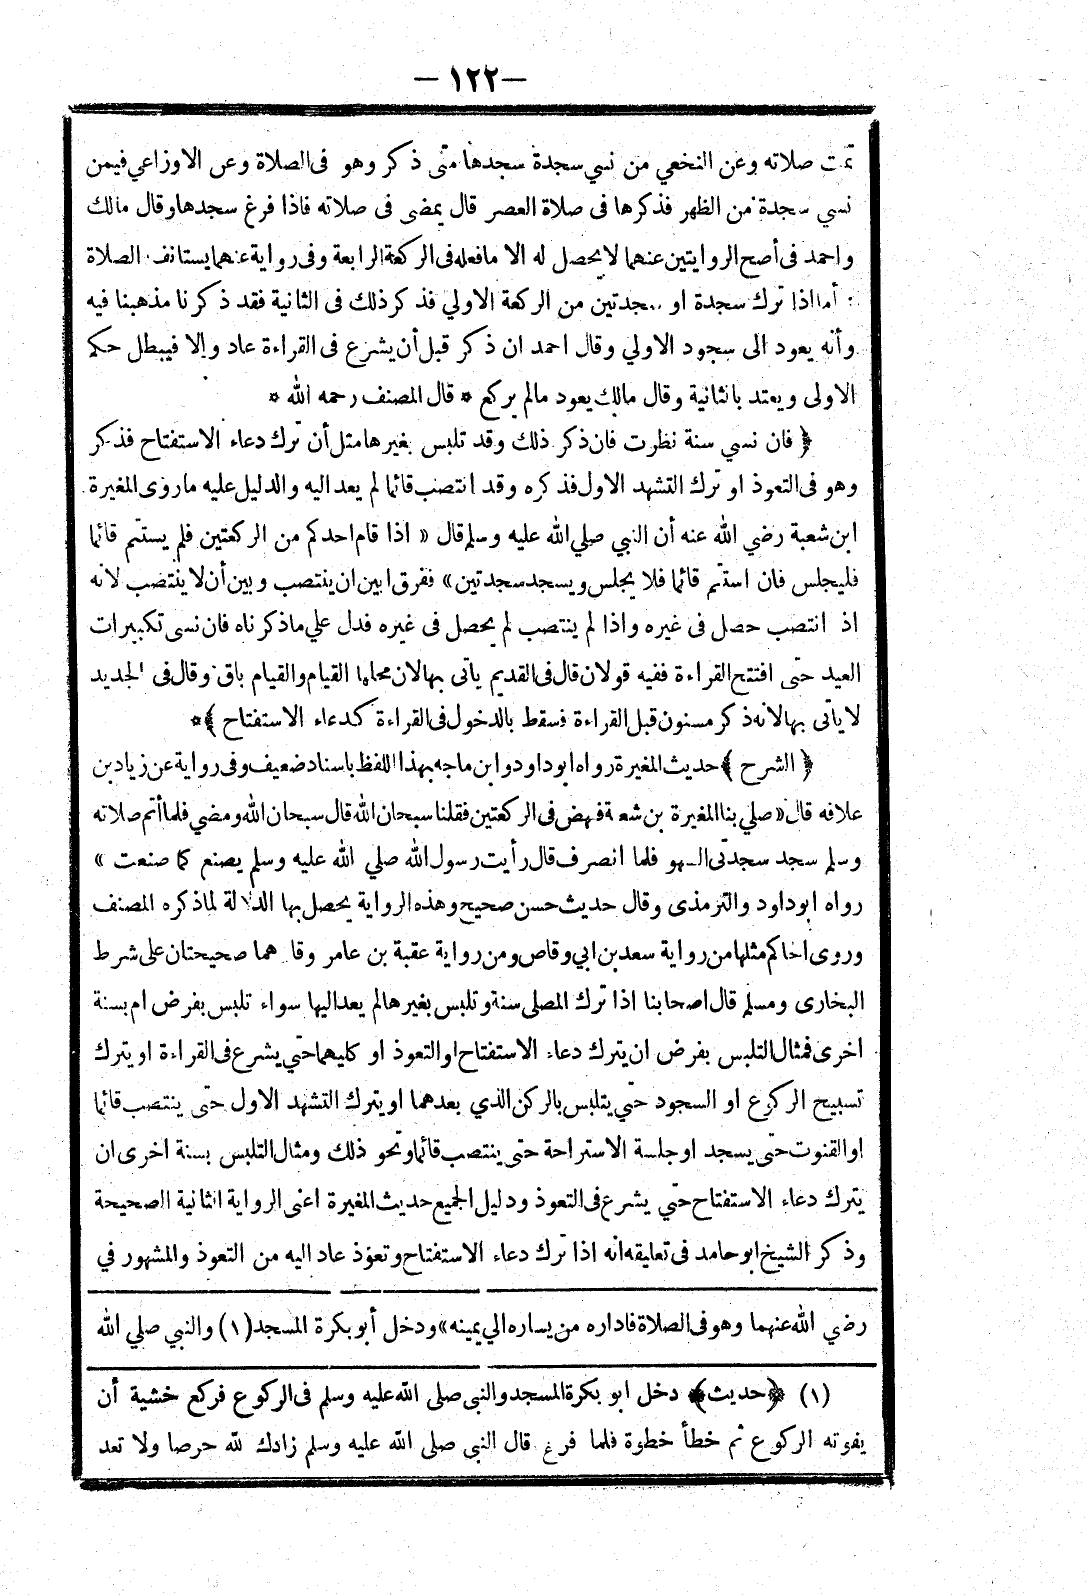 — ١٢٢ —
تمت صلاته وعن النخعي من نسي سجدة سجدها متى ذكر وهو فى الصلاة وعن الاوزاعي فيمن
نسي سجدة من الظهر فذكرها فى صلاة العصر قال يمضى فى صلاته فاذا فرغ سجدها وقال مالك
واحمد فى أصح الروايتين عنهما لا يحصل له الا مافعله فى الركعة الرابعة وفى رواية عنهما يستانف الصلاة
أما اذا ترك سجدة او سجدتين من الركعة الاولي فذكر ذلك فى الثانية فقد ذكرنا مذهبنا فيه
وأنه يعود الى سجود الاولي وقال احمد ان ذكر قبل أن يشرع فى القراءة عاد وإلا فيبطل حكم
الاولى ويعتد بالثانية وقال مالك يعود مالم يركع * قال المصنف رحمه الله *
﴿ فان نسي سنة نظرت فان ذكر ذلك وقد تلبس بغيرها مثل أن ترك دعاء الاستفتاح فذكر
وهو فى التعوذ او ترك التشهد الاول فذكره وقد انتصب قائما لم يعد اليه والدليل عليه ماروى المغيرة
ابن شعبة رضي الله عنه أن النبي صلي الله عليه وسلم قال « اذا قام احدكم من الركعتين فلم يستتم قائما
فليجلس فان استتم قائما فلا يجلس ويسجد سجدتين » ففرق ابين ان ينتصب وبين أن لا ينتصب لانه
اذ انتصب حصل فى غيره واذا لم ينتصب لم يحصل فى غيره فدل علي ماذكرناه فان نسى تكبيرات
العيد حتى افتتح القراءة ففيه قولان قال فى القديم يأتى بها لان محلها القيام والقيام باق وقال فى الجديد
لا يأتى بها لانه ذكر مسنون قبل القراءة فسقط بالدخول فى القراءة كدعاء الاستفتاح ﴾*
﴿ الشرح ﴾ حديث المغيرة رواه ابو داود وابن ماجه بهذا اللفظ باسناد ضعيف وفى رواية عن زياد بن
علافه قال « صلي بنا المغيرة بن شعبة فنهض فى الركعتين فقلنا سبحان الله قال سبحان الله ومضي فلما أتم صلاته
وسلم سجد سجدتى السهو فلما انصرف قال رأيت رسول الله صلي الله عليه وسلم يصنع كما صنعت »
رواه ابو داود والترمذى وقال حديث حسن صحيح وهذه الرواية يحصل بها الدلالة لما ذكره المصنف
وروى الحاكم مثلها من رواية سعد بن ابي وقاص ومن رواية عقبة بن عامر وقا هما صحيحتان على شرط
البخارى ومسلم قال اصحابنا اذا ترك المصلى سنة وتلبس بغيرها لم يعد اليها سواء تلبس بفرض ام بسنة
اخرى فمثال التلبس بفرض ان يترك دعاء الاستفتاح او التعوذ او كليهما حتي يشرع فى القراءة او يترك
تسبيح الركوع او السجود حتي يتلبس بالركن الذي بعدهما او يترك التشهد الاول حتى ينتصب قائما
او القنوت حتى يسجد او جلسة الاستراحة حتى ينتصب قائما ونحو ذلك ومثال التلبس بسنة اخرى ان
يترك دعاء الاستفتاح حتي يشرع فى التعوذ ودليل الجميع حديث المغيرة اعنى الرواية الثانية الصحيحة
وذكر الشيخ ابو حامد فى تعليقه انه اذا ترك دعاء الاستفتاح وتعوذ عاد اليه من التعوذ والمشهور في
رضي الله عنهما وهو فى الصلاة فاداره من يساره الي يمينه» ودخل أبو بكرة المسجد (١) والنبي صلي الله
(١) ﴿حديث﴾ دخل ابو بكرة المسجد والنبى صلى الله عليه وسلم فى الركوع فركع خشية أن
يفوته الركوع ثم خطأ خطوة فلما فرغ قال النبى صلى الله عليه وسلم زادك لله حرصا ولا تعد